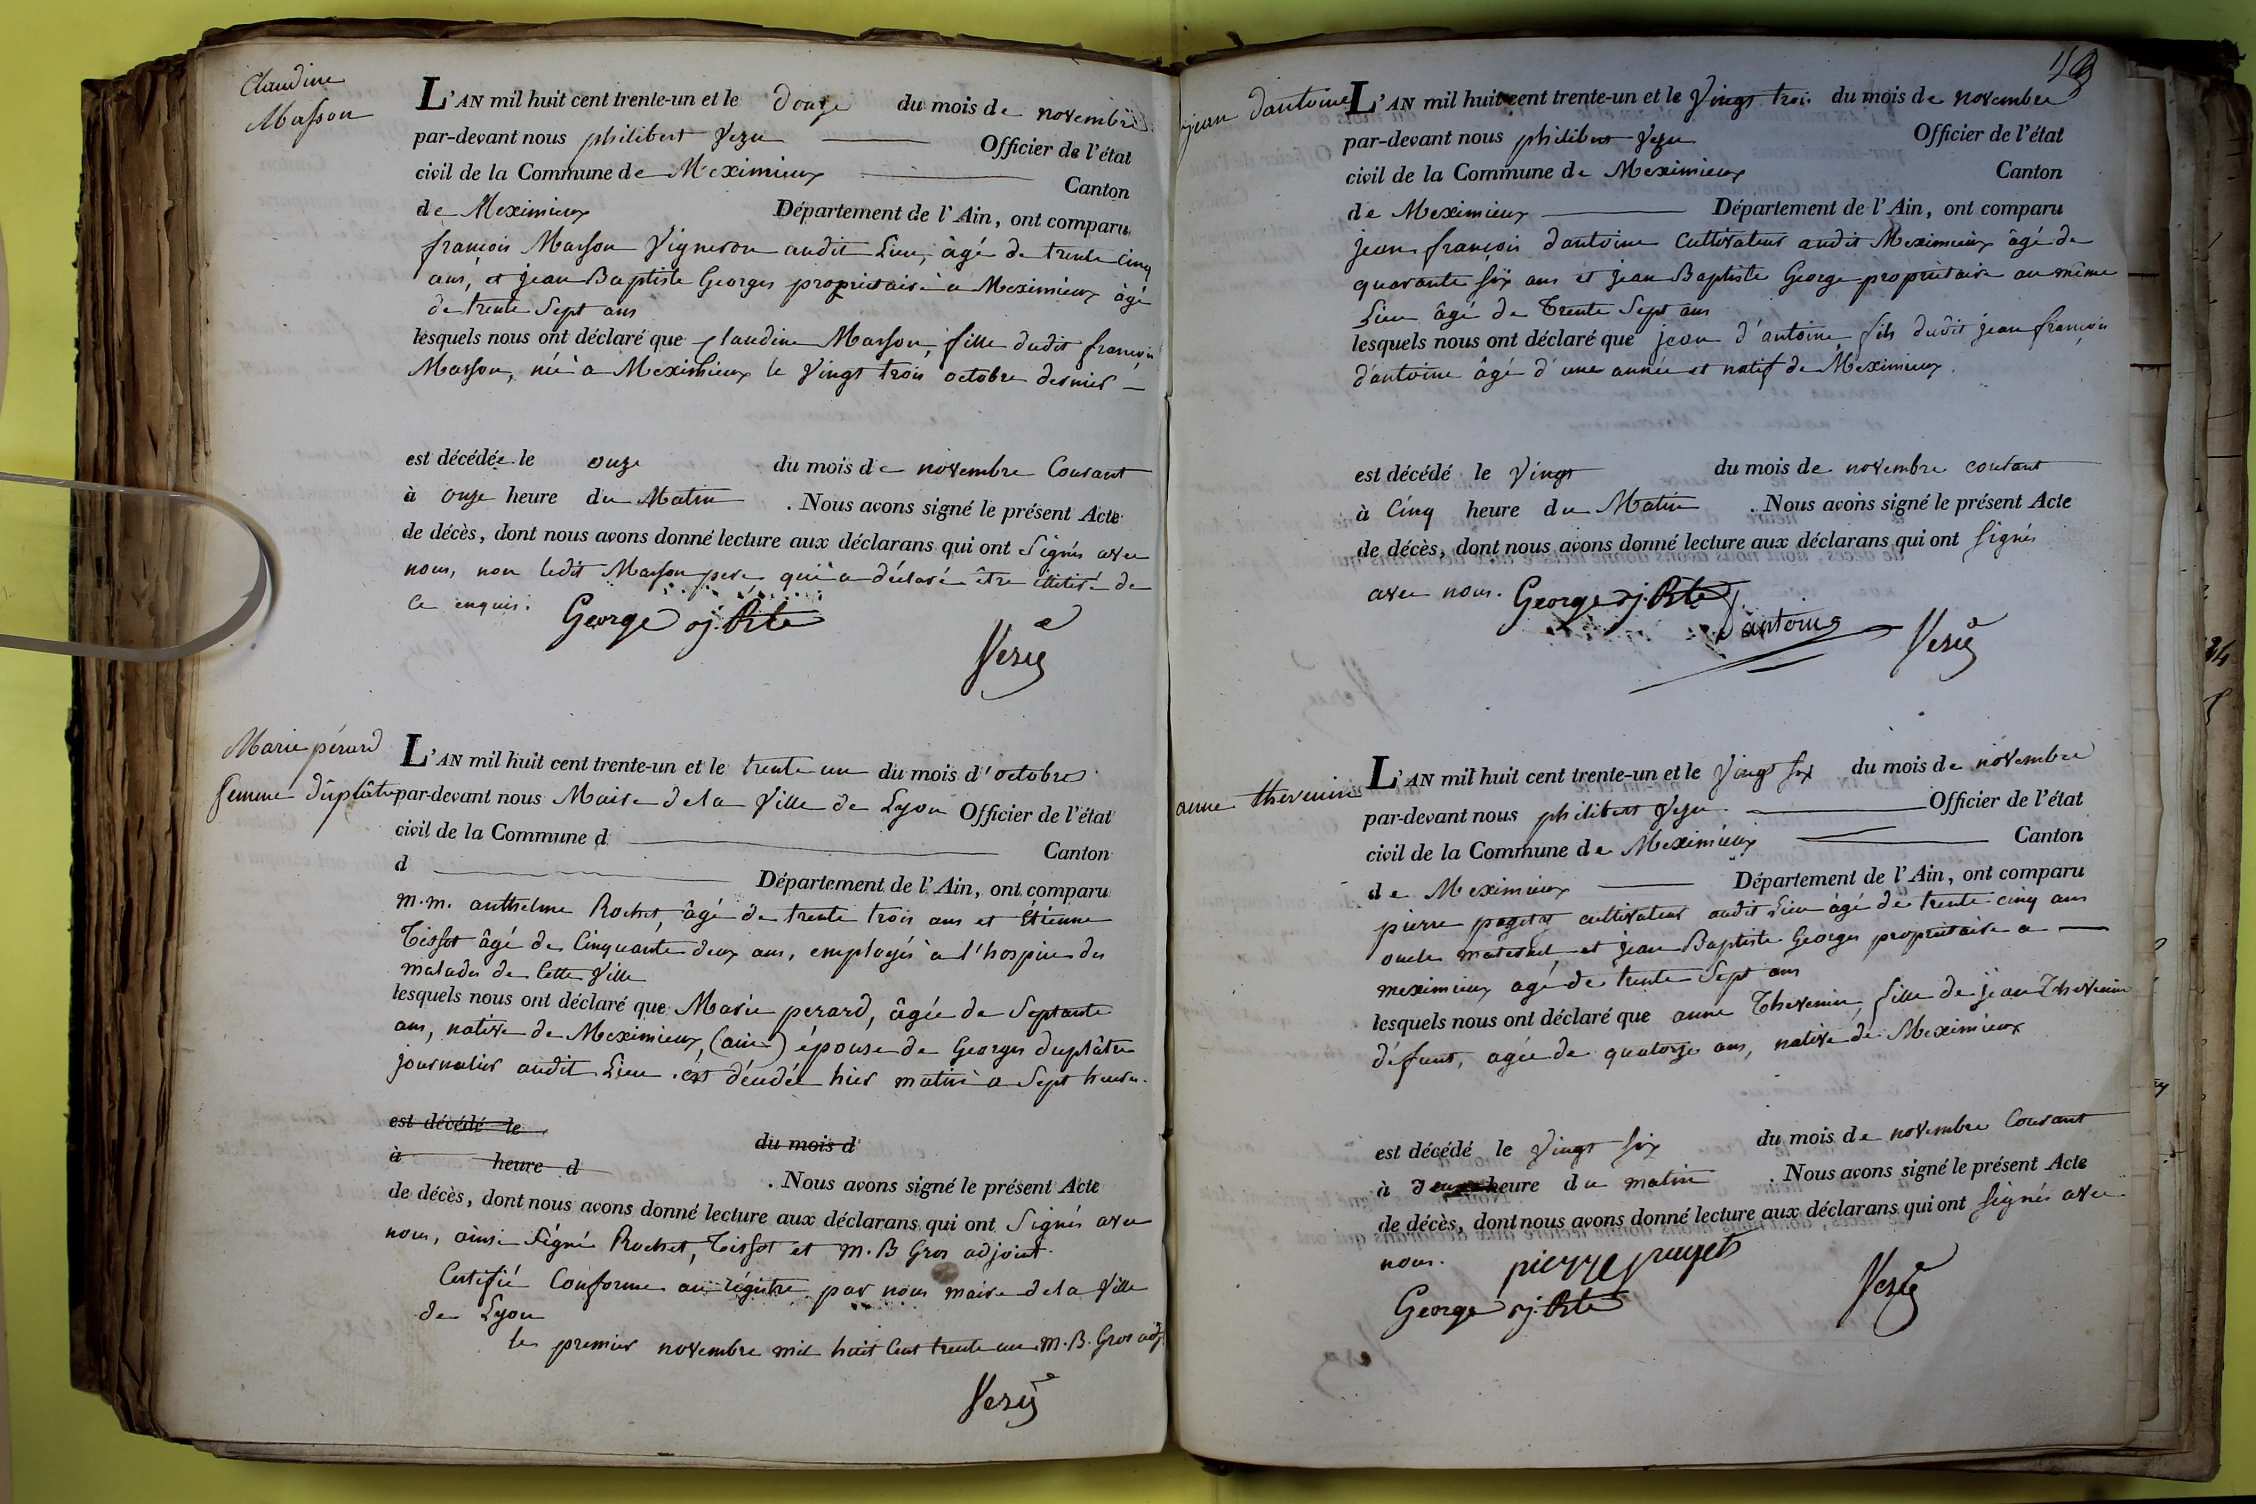 Claudine
Masson
L'AN mil huit cent trente-un et le douze du mois de novembre
par-devant nous philibert Vezu Officier de l'état
civil de la Commune de Meximieux Canton
de Meximieux Département de l'Ain, ont comparu
françois Masson Vigneron audit Lieu, âgé de trente cinq
ans, et jean Baptiste Georges propriétaire a Meximieux âgé
de trente Sept ans
lesquels nous ont déclaré que Claudine Masson, fille dudit françois
Masson, née a Meximieux le Vingt trois octobre dernier
est décédée le onze du mois de novembre Courant
à onze heure du Matin . Nous avons signé le présent Acte
de décès, dont nous avons donné lecture aux déclarans qui ont Signés avec
nous, non ledit Masson pere qui a déclaré être illitéré de
ce enquis.
George j. Bte
Vezu
Marie pérard
femme duplâtre
L'AN mil huit cent trente-un et le trente un du mois d'octobre
par-devant nous Maire de la Ville de Lyon Officier de l'état
civil de la Commune d Canton
d Département de l'Ain, ont comparu
m.m. anthelme Rochet, âgé de trente trois ans et Étienne
Tissot âgé de Cinquante deux ans, employés à l'hospice des
malades de Cette Ville
lesquels nous ont déclaré que Marie pérard, âgée de Septante
ans, native de Meximieux, (ain) épouse de Georges duplâtre
journalier audit Lieu. est décédée hier matin a Sept heures.
est décédé le du mois d
à heure d
. Nous avons signé le présent Acte
de décès, dont nous avons donné lecture aux déclarans qui ont Signés avec
nous, ainsi Signé Rochet, Tissot et m. B Gros adjoint.
Certifié Conforme au régitre par nous maire de la Ville
de Lyon
le premier novembre mil huit Cent trente un M. B. Gros adj.
Vezu
jean dantoine
L'AN mil huit cent trente-un et le Vingt trois du mois de novembre
par-devant nous philibert Vezu Officier de l'état
civil de la Commune de Meximieux Canton
de Meximieux Département de l'Ain, ont comparu
jean françois dantoine Cultivateur audit Meximieux âgé de
quarante Six ans et jean Baptiste George propriétaire au même
Lieu âgé de Trente Sept ans
lesquels nous ont déclaré que jean d'antoine fils dudit jean françois
d'antoine âgé d'une année et natif de Meximieux.
est décédé le Vingt du mois de novembre courant
à Cinq heure du Matin . Nous avons signé le présent Acte
de décès, dont nous avons donné lecture aux déclarans qui ont Signés
avec nous. George j. Bte
Dantoine
Vezu
anne thevenin
L'AN mil huit cent trente-un et le Vingt Six du mois de novembre
par-devant nous philibert Vezu Officier de l'état
civil de la Commune de Meximieux Canton
de Meximieux Département de l'Ain, ont comparu
pierre cultivateur audit Lieu âgé de trente cinq ans
oncle maternel et jean Baptiste Georges propriétaire a
meximieux agé de trente Sept ans
lesquels nous ont déclaré que anne Thevenin, fille de jean Thevenin
défunt, agée de quatorze ans, native de Meximieux
est décédé le Vingt Six du mois de novembre Courant
à deux heure du matin . Nous avons signé le présent Acte
de décès, dont nous avons donné lecture aux déclarans qui ont Signés avec
nous. pierre
George j. Bte
Vezu